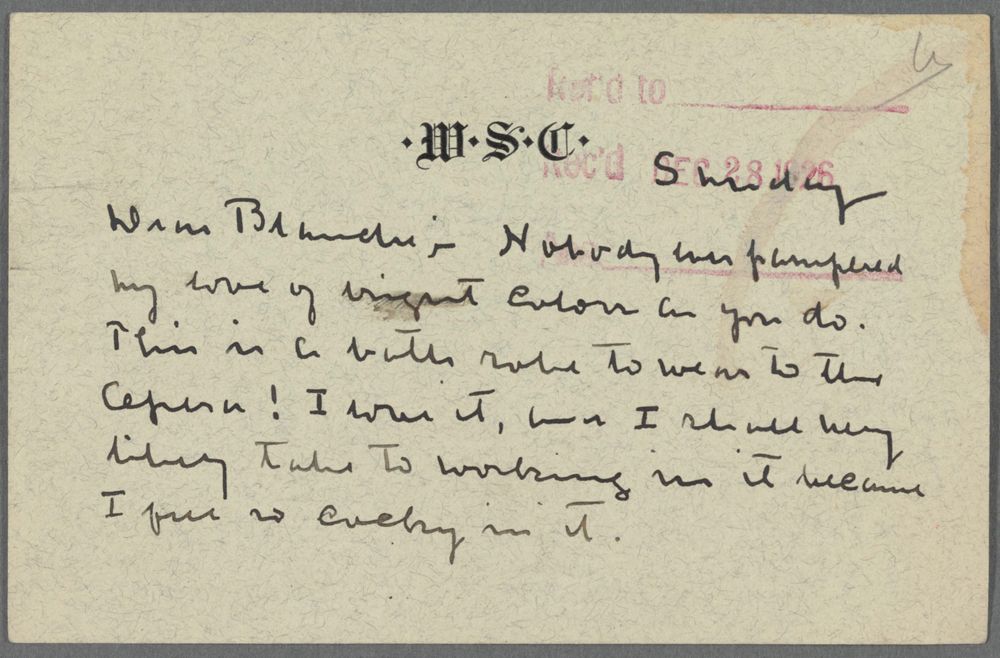 Ref'd to
·W·S·C·
Rec'd DEC 28 1926
Sunday
Dear Blanche;- Nobody ever pampered
my love of bright colour as you do.
This is a bath robe to wear to the
Opera! I love it, and I shall very
likely take to working in it because
I feel so cocky in it.